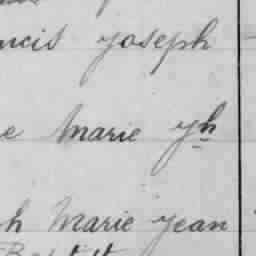 ncis Joseph
e Marie Jh
h Marie Jean
Bapt